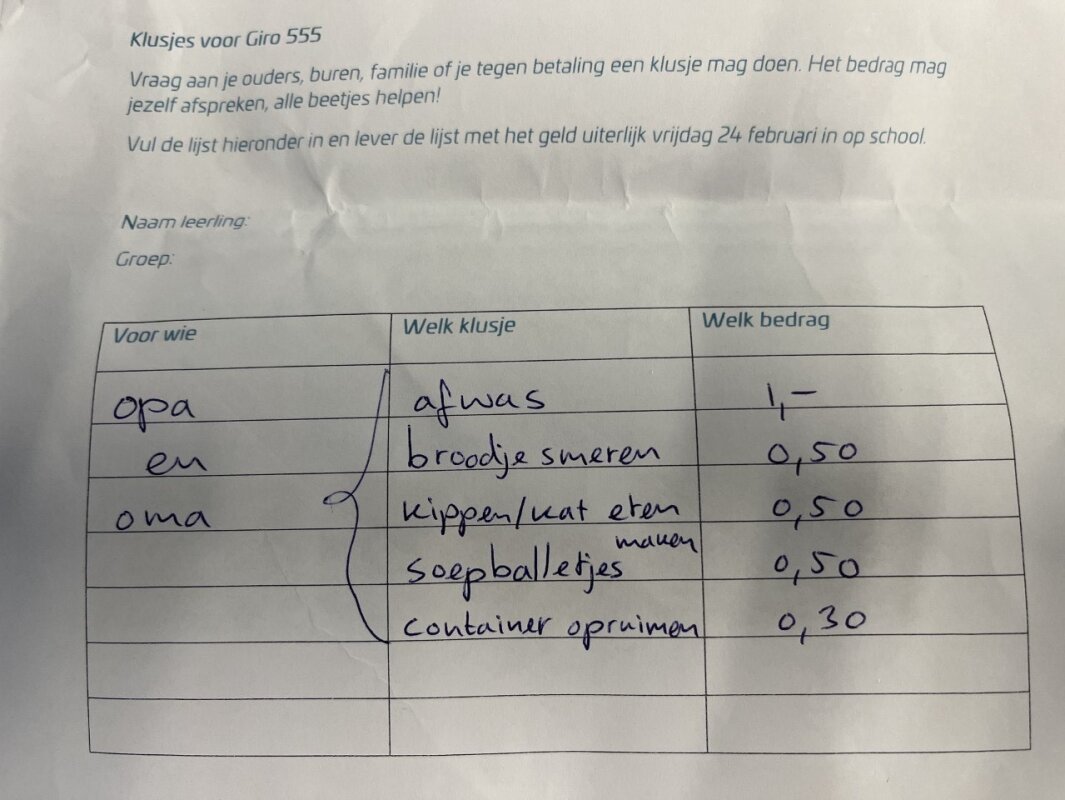 Klusjes voor Giro 555
Vraag aan je ouders, buren, familie of je tegen betaling een klusje mag doen. Het bedrag mag
jezelf afspreken, alle beetjes helpen!
Vul de lijst hieronder in en lever de lijst met het geld uiterlijk vrijdag 24 februari in op school.
Naam leerling:
Groep:
Voor wie Welk klusje Welk bedrag
opa afwas 1,-
en broodje smeren 0,50
oma kippen/kat eten 0,50
maken
soepballetjes 0,50
container opruimen 0,30